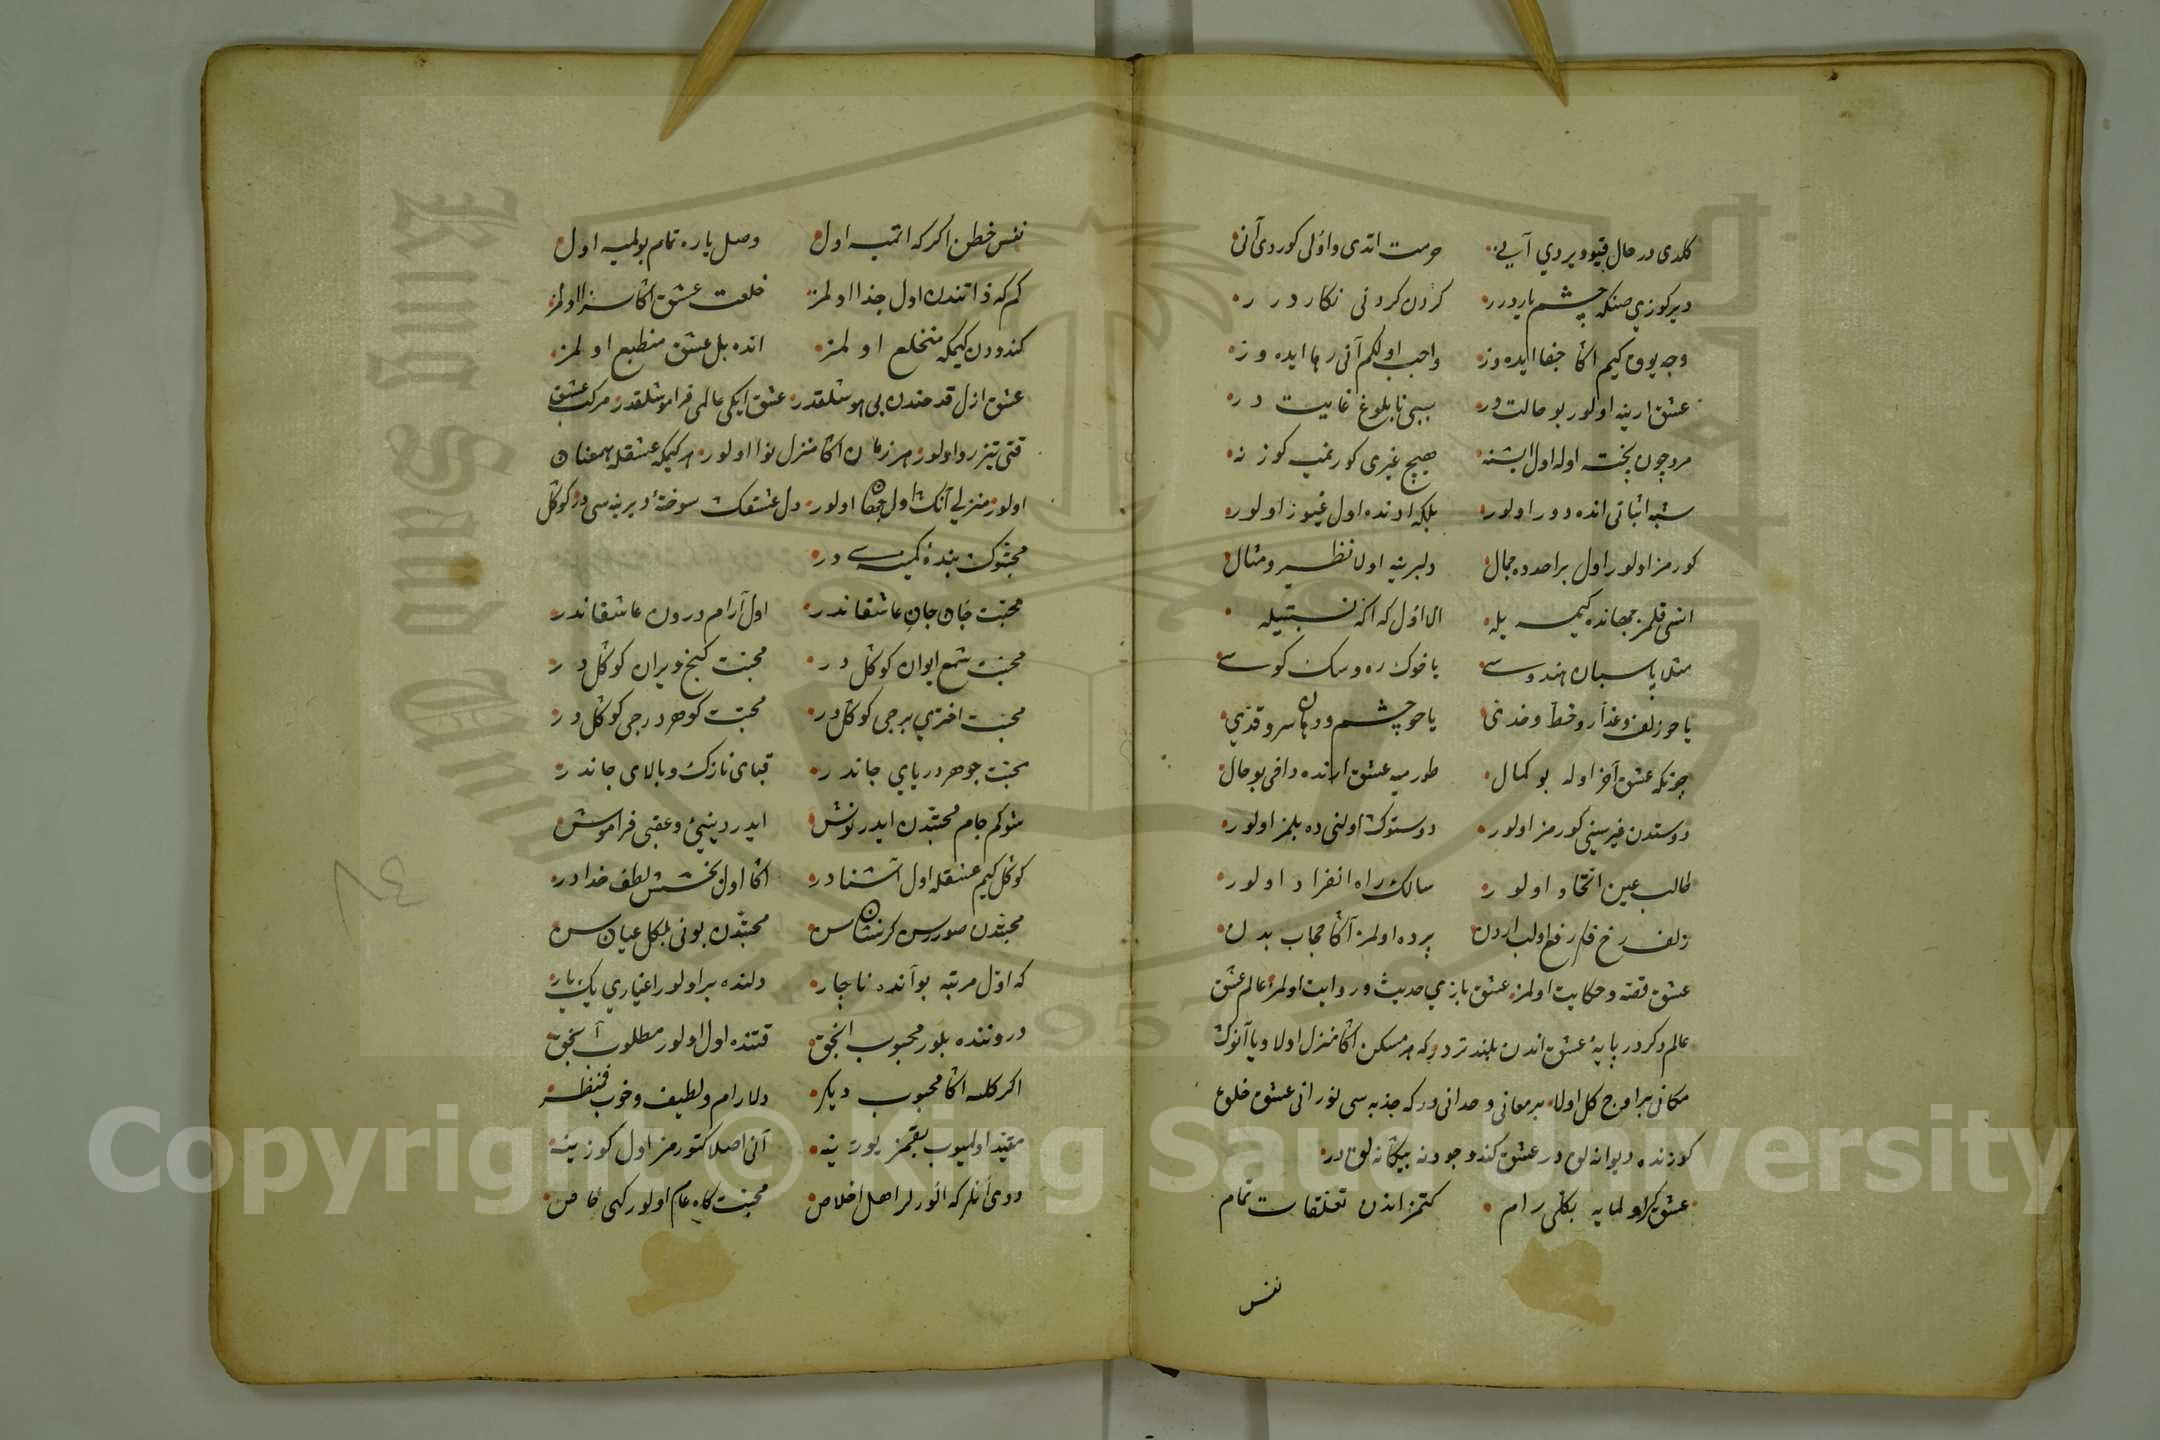 كلدى در حال قپو ويردي آيينه حرمت اتدى واولى كوردى آنى
دير كوزي صنكه چشم ياردرر كردن كردنى نكاردرر
وجه يوق كيم اكا جفا ايده وز واجب اولكم آنى رها ايده وز
عشق ارينه اولور بو حالت در سببى تا بلوغ غايت در
مرد چون پخته اوله اول ايشنه هيچ غيرى كورنميه كوزنه
شبه اثباتى انده دور اولور بلكه اوندە اول غيور اولور
كورمز اولور اول بر احدده جمال دلبرينه اولا نظير ومثال
انسى قلمز جهانده كيمسه يله الا اول كه اكه نسبتيله
مثلا پاسبان هندوسى ياخوك ره وسك كوسى
يا حو زلف وعذار وخط وخدنى يا حو چشم ودهان سرو قدّي
چونكه عشق آخر اوله بو كمال طورميه عشق ارنده داخى بو حال
دوستدن غيرسينى كورمز اولور دوستوك اولنى ده بلمز اولور
طالب عين اتحاد اولور سالك راه انفراد اولور
زلف رخ قلم رفع اولب اردن پرده اولمز آكا حجاب بدن
عشق قصه وحكايت اولمز عشق بازي حديث وروايت اولمز عالم عشق
عالم دكر در پايۀ عشق اندن بلندتر در كه هر مسكن اكا منزل اولا ويا آنوك
مكانى براوج كل اولا بر معانى وحدانى در كه جذبه سى نورانى عشق خلق
كوزنده ديوانه لق در عشق كندو جودنه بيكانه لق در
عشق كر اولمايه بكلى رام كتمز اندن تعلقات تمام
نفس
نفس خطن اكر كه اتميه اول وصل ياره تمام بولميه اول
كم كه ذاتندن اول جدا اولمز خلعت عشق اكا سزا اولمز
كندودن كيمكه منخلع اولمز انده بل عشق منطبع اولمز
عشق ازل قدحندن بى هوشلقدر عشق ايكى عالمى فراموشلقدر مركب عشق
قتى تيزرو اولور هر زمان اكا منزل نوا اولور هر كيمكه عشقله همعنان
اولور منزلي آنك اول جهان اولور دل عشقك سوختۀ ديرينه سى در كوكل
محبتوك بندۀ كمينه سى در
محبّت جان جان عاشقاندر اول آرام درون عاشقاندر
محبّت شمع ايوان كوكل در محبّت كنج ويران كوكل در
محبّت اختري برجى كوكل در محبّت كوهر درجى كوكل در
محبّت جوهر درياي جاندر قباى نازك وبالاى جاندر
شو كم جام محبّتدن ايدر نوش ايدر دنيىئ وعقبى فراموش
كوكل كيم عشقله اول آشنا در اكا اول بخشش لطف خدا در
محبّتدن صورسن كر نشان سن محبّتدن بونى بلكل عيان سن
كه اوّل مرتبه بو آنده ناچار دلنده بر اولور اغياري يك يار
دروننده بلور محبوب انجق قتنده اول اولور مطلوب آنجق
اكر كلسه اكا محبوب ديكر دلارام ولطيف وخوب منظر
مقيّد اولميوب بقمز يوزينه آنى اصلا كتورمز اول كوزينه
ددى آنلر كه انورلر اهل اخلاص محبّت كاه عام اولور كهى خاص